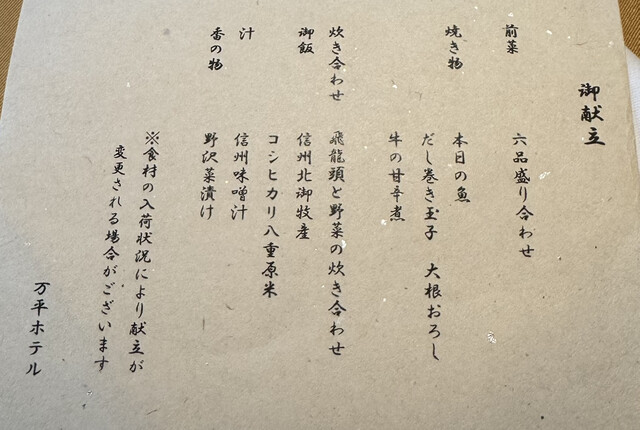 御献立
前菜
六品盛り合わせ
焼き物
本日の魚
だし巻き玉子 大根おろし
牛の甘辛煮
炊き合わせ
飛龍頭と野菜の炊き合わせ
御飯
信州北御牧産
コシヒカリ八重原米
汁
信州味噌汁
香の物
野沢菜漬け
※食材の入荷状況により献立が
変更される場合がございます
万平ホテル